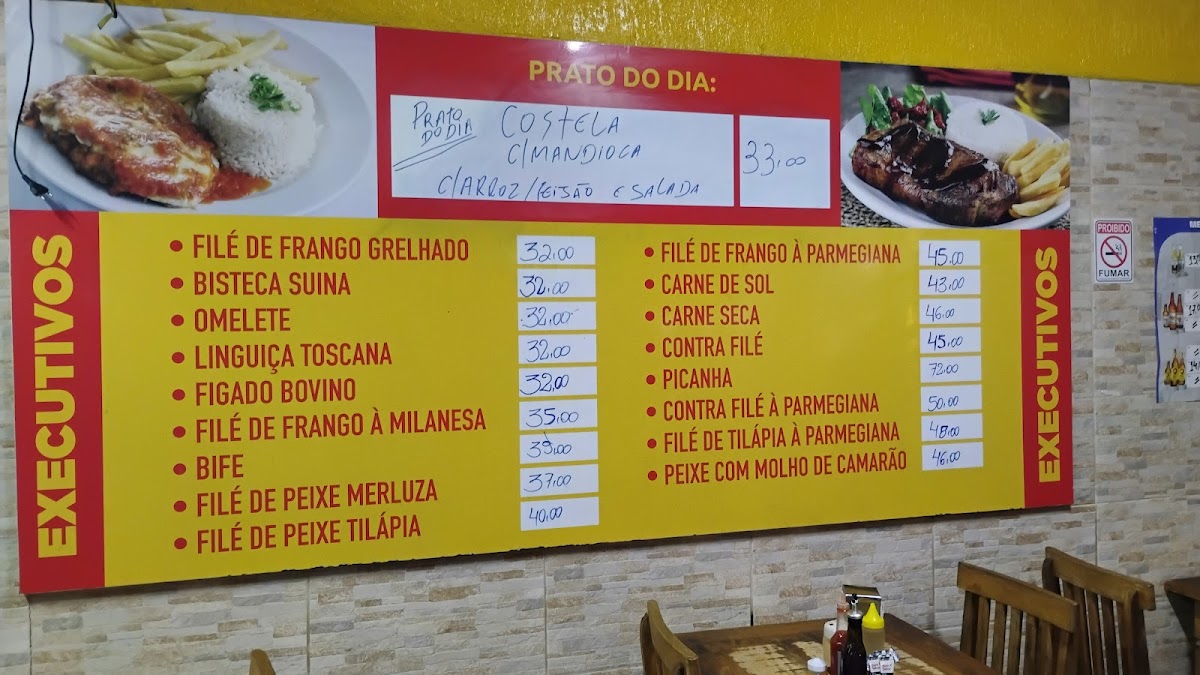 PRATO DO DIA:
PRATO
DO DIA
COSTELA
C/MANDIOCA
C/ARROZ/FEIJÃO E SALADA
33,00
EXECUTIVOS
• FILÉ DE FRANGO GRELHADO 32,00
• BISTECA SUINA 32,00
• OMELETE 32,00
• LINGUIÇA TOSCANA 32,00
• FIGADO BOVINO 32,00
• FILÉ DE FRANGO À MILANESA 35,00
• BIFE 39,00
• FILÉ DE PEIXE MERLUZA 37,00
• FILÉ DE PEIXE TILÁPIA 40,00
• FILÉ DE FRANGO À PARMEGIANA 45,00
• CARNE DE SOL 43,00
• CARNE SECA 46,00
• CONTRA FILÉ 45,00
• PICANHA 72,00
• CONTRA FILÉ À PARMEGIANA 50,00
• FILÉ DE TILÁPIA À PARMEGIANA 48,00
• PEIXE COM MOLHO DE CAMARÃO 46,00
EXECUTIVOS
PROIBIDO
FUMAR